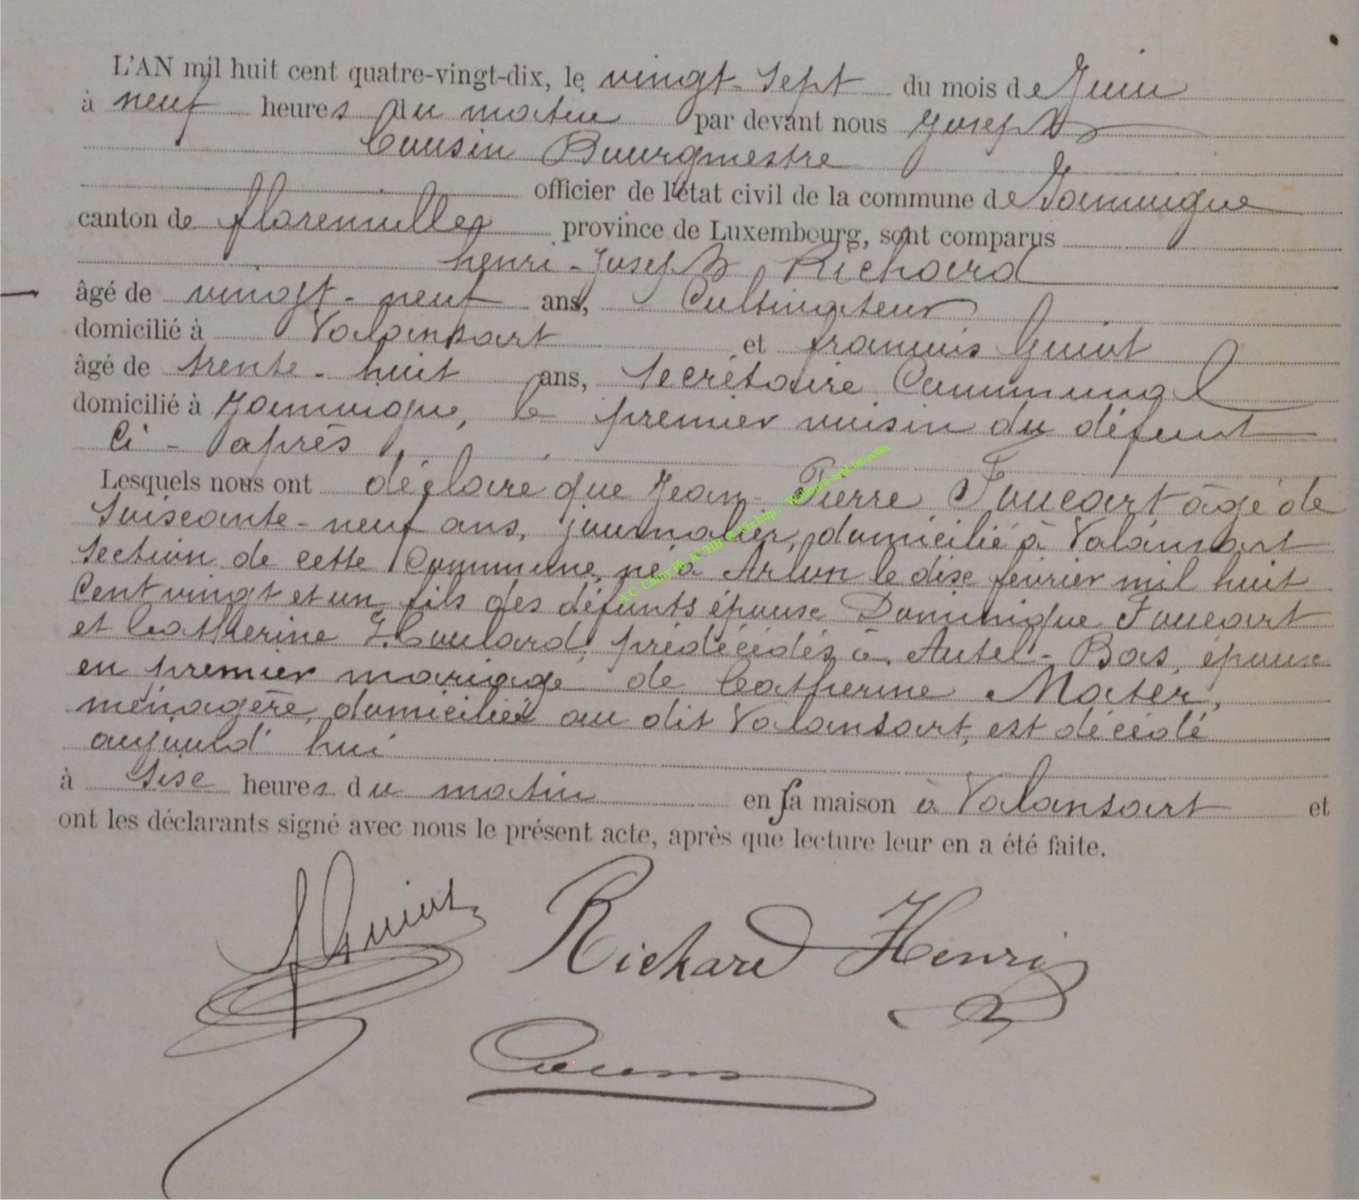 L'AN mil huit cent quatre-vingt-dix, le vingt-sept du mois de Juin
à neuf heures du matin par devant nous Joseph
Cousin Bourgmestre
officier de l'état civil de la commune de Jamoigne
canton de florenville, province de Luxembourg, sont comparus
henri-Joseph Richard
âgé de vingt-neuf ans, Cultivateur
domicilié à Valansart et françois Guiot
âgé de trente-huit ans, Secrétaire Communal
domicilié à Jamoigne, le premier voisin du défunt
Ci-après,
Lesquels nous ont déclaré que Jean-Pierre Foucart âgé de
Soixante-neuf ans, journalier, domicilié à Valansart
Section de cette Commune, né à Arlon le dix février mil huit
Cent vingt et un, fils des défunts époux Dominique Foucart
et Catherine prédécédés à Autel-Bas, époux
en premier mariage de Catherine Mater,
ménagère, domiciliée au dit Valansart, est décédé
aujourd'hui
à Six heures du matin en sa maison à Valansart et
ont les déclarants signé avec nous le présent acte, après que lecture leur en a été faite.
f Guiot Richard Henri
Cousin